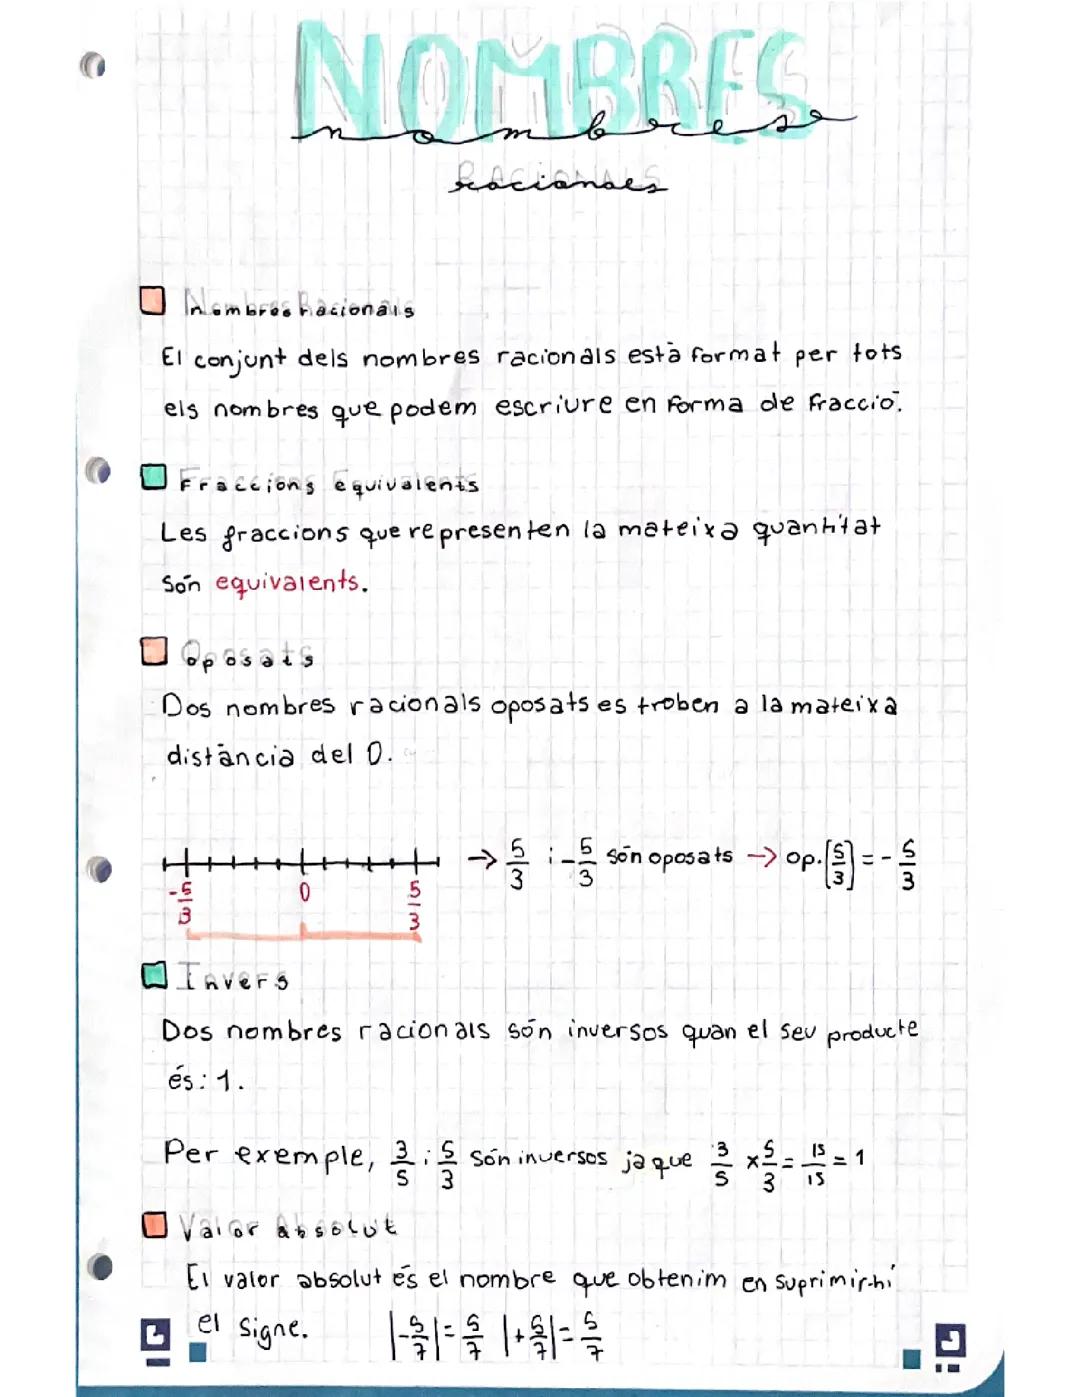 NOMBRES
nombres
RACIONALS
racionals
Nombres Racionals
El conjunt dels nombres racionals està format per tots
els nombres que podem escriure en forma de fracció.
Fraccions equivalents
Les fraccions que representen la mateixa quantitat
són equivalents.
Oposats
Dos nombres racionals oposats es troben a la mateixa
distància del 0.
→ 5/3 i -5/3 són oposats → op.[5/3] = -5/3
-5/3 0 5/3
Invers
Dos nombres racionals són inversos quan el seu producte
és: 1.
Per exemple, 3/5 i 5/3 són inversos ja que 3/5 x 5/3 = 15/15 = 1
Valor Absolut
El valor absolut és el nombre que obtenim en suprimir-hi
el signe. |-5/7| = 5/7 |+5/7| = 5/7